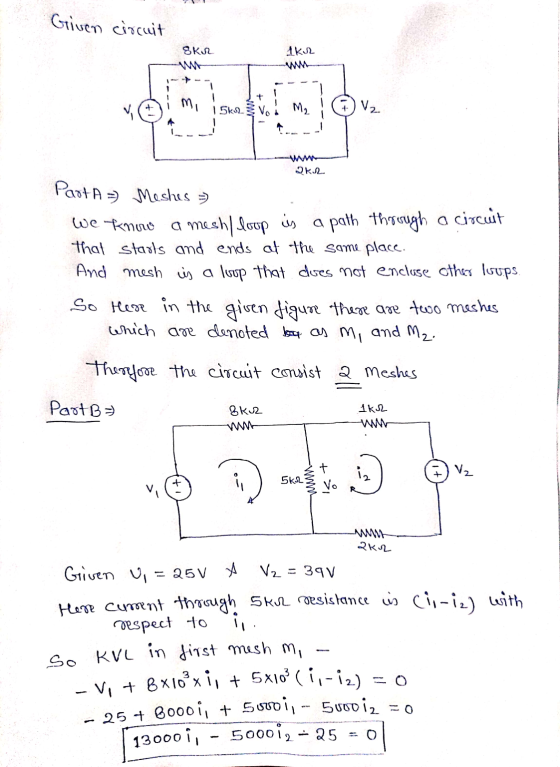 Given circuit
8KΩ 1KΩ
V₁ + - M₁ 5KΩ + V₀ - M₂ - + V₂
2KΩ
Part A ⇒ Meshes ⇒
We know a mesh/loop is a path through a circuit
that starts and ends at the same place.
And mesh is a loop that does not enclose other loops
So Here in the given figure there are two meshes
which are denoted as M₁ and M₂.
Therefore the circuit consist 2 meshes
Part B ⇒
8KΩ 1KΩ
V₁ + - i₁ 5KΩ + V₀ - i₂ - + V₂
2KΩ
Given V₁ = 25V & V₂ = 39V
Here current through 5KΩ resistance is (i₁-i₂) with
respect to i₁.
So KVL in first mesh M₁ -
- V₁ + 8×10³×i₁ + 5×10³(i₁-i₂) = 0
- 25 + 8000i₁ + 5000i₁ - 5000i₂ = 0
13000i₁ - 5000i₂ - 25 = 0